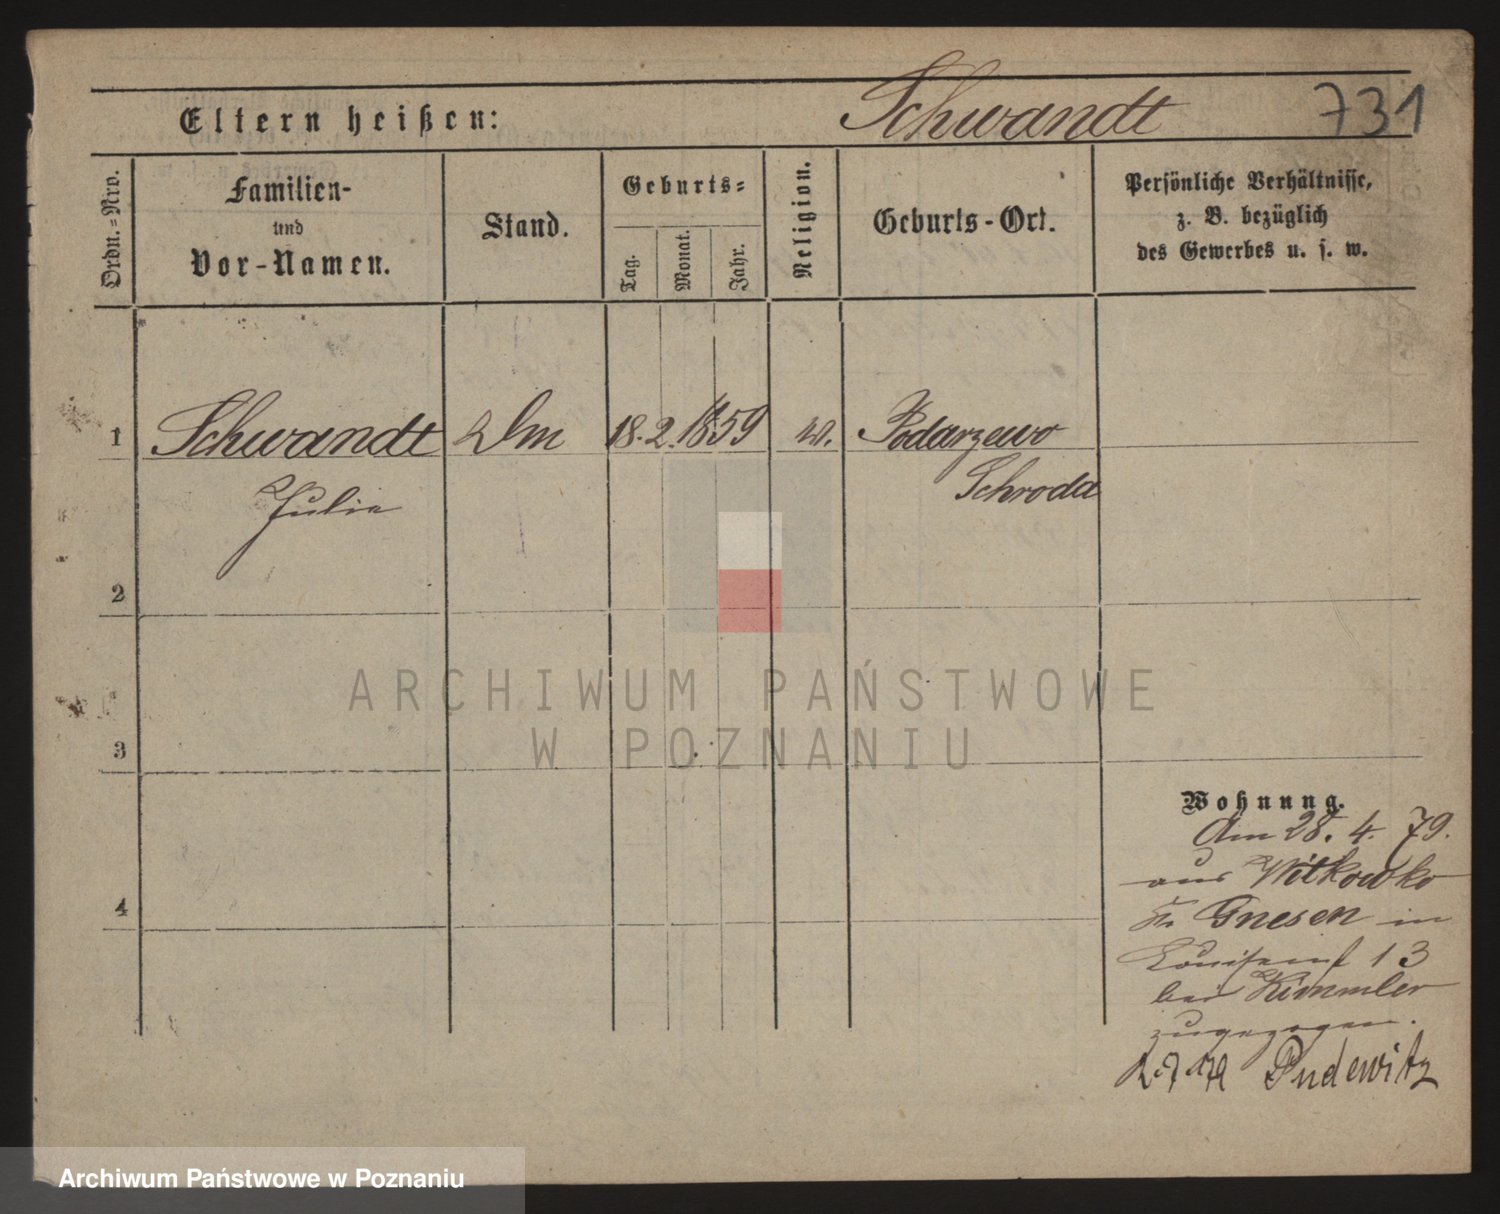 Eltern heißen: Schwandt 731
Ordn.=Nro.
Familien-
und
Vor-Namen.
Stand.
Geburts=
Tag.
Monat.
Jahr.
Religion.
Geburts-Ort.
Persönliche Verhältnisse,
z. B. bezüglich
des Gewerbes u. s. w.
1 Schwandt 18. 2. 1859 Podarzewo
Julie Schroda
2
ARCHIWUM PAŃSTWOWE
W POZNANIU
3
Wohnung.
Am 28. 4. 79.
aus Witkowko
Kr Gnesen in
13
bei Kimmler
zugezogen.
4
Pudewitz
Archiwum Państwowe w Poznaniu